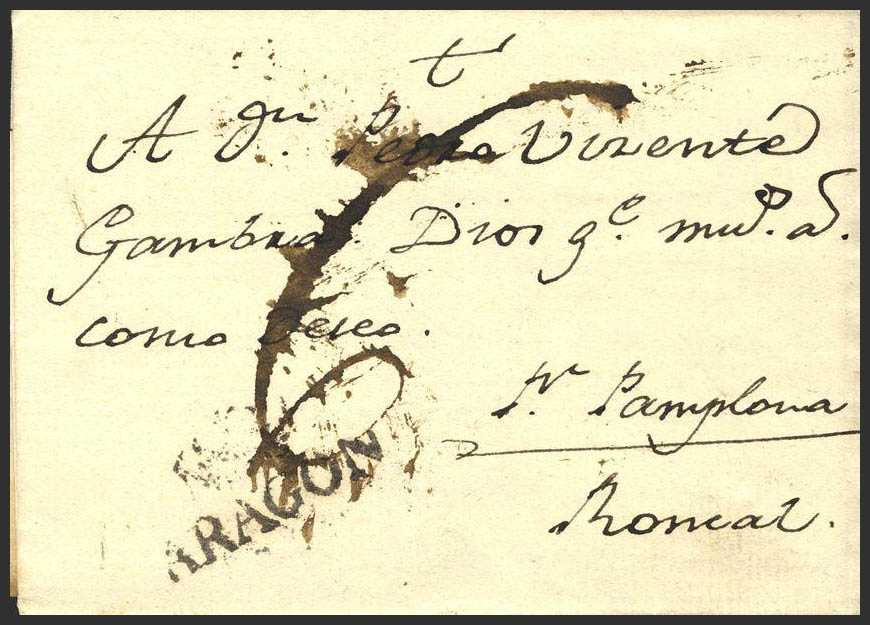 t
A Dn. Pedro Vizente
Gambra. Dios ge. mus. as.
como Deseo.
6
Pr. Pamplona
ARAGON
Roncal.